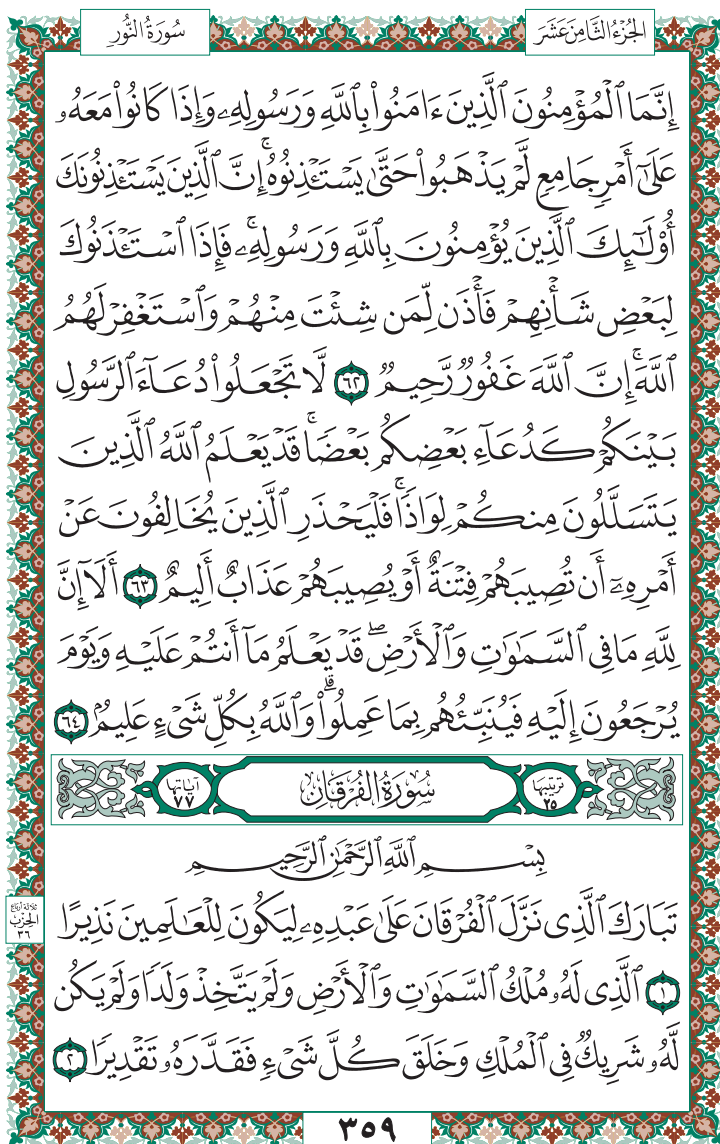 الجُزْءُ الثَّامِنَ عَشَرَ
سُورَةُ النُّورِ
إِنَّمَا ٱلْمُؤْمِنُونَ ٱلَّذِينَ ءَامَنُوا۟ بِٱللَّهِ وَرَسُولِهِۦ وَإِذَا كَانُوا۟ مَعَهُۥ
عَلَىٰٓ أَمْرٍ جَامِعٍ لَّمْ يَذْهَبُوا۟ حَتَّىٰ يَسْتَـْٔذِنُوهُۚ إِنَّ ٱلَّذِينَ يَسْتَـْٔذِنُونَكَ
أُو۟لَٰٓئِكَ ٱلَّذِينَ يُؤْمِنُونَ بِٱللَّهِ وَرَسُولِهِۦۚ فَإِذَا ٱسْتَـْٔذَنُوكَ
لِبَعْضِ شَأْنِهِمْ فَأْذَن لِّمَن شِئْتَ مِنْهُمْ وَٱسْتَغْفِرْ لَهُمُ
ٱللَّهَۚ إِنَّ ٱللَّهَ غَفُورٌ رَّحِيمٌ ٦٢ لَّا تَجْعَلُوا۟ دُعَآءَ ٱلرَّسُولِ
بَيْنَكُمْ كَدُعَآءِ بَعْضِكُم بَعْضًاۚ قَدْ يَعْلَمُ ٱللَّهُ ٱلَّذِينَ
يَتَسَلَّلُونَ مِنكُمْ لِوَاذًاۚ فَلْيَحْذَرِ ٱلَّذِينَ يُخَالِفُونَ عَنْ
أَمْرِهِۦٓ أَن تُصِيبَهُمْ فِتْنَةٌ أَوْ يُصِيبَهُمْ عَذَابٌ أَلِيمٌ ٦٣ أَلَآ إِنَّ
لِلَّهِ مَا فِى ٱلسَّمَٰوَٰتِ وَٱلْأَرْضِۖ قَدْ يَعْلَمُ مَآ أَنتُمْ عَلَيْهِ وَيَوْمَ
يُرْجَعُونَ إِلَيْهِ فَيُنَبِّئُهُم بِمَا عَمِلُوا۟ۗ وَٱللَّهُ بِكُلِّ شَىْءٍ عَلِيمٌۢ ٦٤
ترتيبها ٢٥ سُورَةُ الفُرْقَانِ آياتها ٧٧
بِسْمِ ٱللَّهِ ٱلرَّحْمَٰنِ ٱلرَّحِيمِ
تَبَارَكَ ٱلَّذِى نَزَّلَ ٱلْفُرْقَانَ عَلَىٰ عَبْدِهِۦ لِيَكُونَ لِلْعَٰلَمِينَ نَذِيرًا
١ ٱلَّذِى لَهُۥ مُلْكُ ٱلسَّمَٰوَٰتِ وَٱلْأَرْضِ وَلَمْ يَتَّخِذْ وَلَدًا وَلَمْ يَكُن
لَّهُۥ شَرِيكٌ فِى ٱلْمُلْكِ وَخَلَقَ كُلَّ شَىْءٍ فَقَدَّرَهُۥ تَقْدِيرًا ٢
ثلاثة أرباع
الحزب
٣٦
٣٥٩